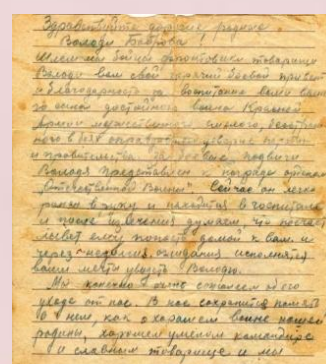 Здравствуйте дорогие родные
Володи Боброва!
Шлем мы бойцы фронтовики товарищи
Володи вам свой горячий боевой привет
и благодарность за воспитание вами ваше-
го сына достойного воина Красной
армии мужественного, смелого, бесстраш-
ного в боях оправдавшего доверие партии
и правительства. За боевые подвиги
Володя представлен к награде орденом
"Отечественной Войны". Сейчас он легко
ранен в руку и находится в госпитале
и после излечения думаем, что
ему попасть домой к вам и
через ожидания исполнятся
ваши мечты увидеть Володю.
Мы конечно очень сожалеем об его
уходе от нас. В нас сохранится память
о нем, как о хорошем воине нашей
родины, хорошем умелом командире
и славным товарище и мы